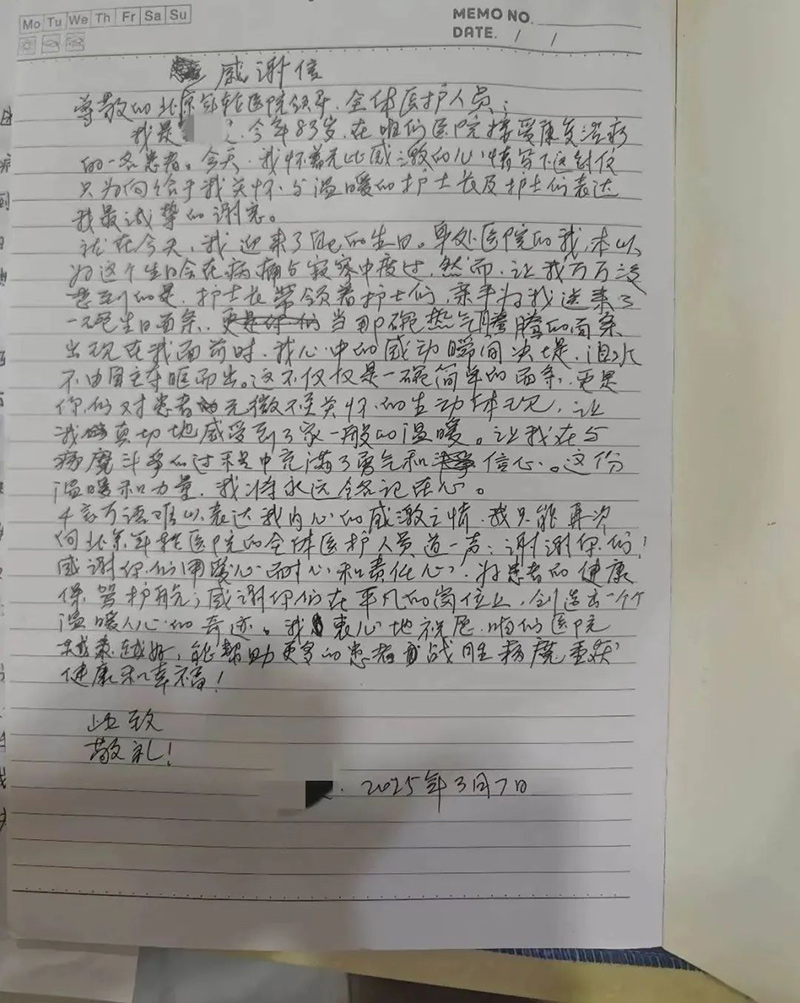 Mo Tu We Th Fr Sa Su
MEMO NO.
DATE. / /
感谢信
尊敬的北京年轮医院领导、全体医护人员:
我是 今年83岁,在咱们医院接受康复治疗
的一名患者。今天,我怀着无比感激的心情写下这封信
只为向给予我关怀与温暖的护士长及护士们表达
我最诚挚的谢意。
就在今天,我迎来了自己的生日。身处医院的我,本以
为这个生日会在病痛与寂寥中度过,然而,让我万万没
想到的是,护士长带领着护士们,亲手为我送来了
一碗生日面条,更是你们当那碗热气腾腾的面条
出现在我面前时,我心中的感动瞬间决堤,泪水
不由自主夺眶而出。这不仅仅是一碗简单的面条,更是
你们对患者无微不至关怀的生动体现,让
我真切地感受到了家一般的温暖。让我在与
病魔斗争的过程中充满了勇气和信心。这份
温暖和力量,我将永远铭记于心。
千言万语难以表达我内心的感激之情,我只能再次
向北京年轮医院的全体医护人员道一声:谢谢你们!
感谢你们用爱心、耐心和责任心,为患者的健康
保驾护航;感谢你们在平凡的岗位上,创造出一个个
温暖人心的奇迹。我衷心地祝愿咱们医院
越来越好,能帮助更多的患者战胜病魔重获
健康和幸福!
此致
敬礼!
2025年3月7日